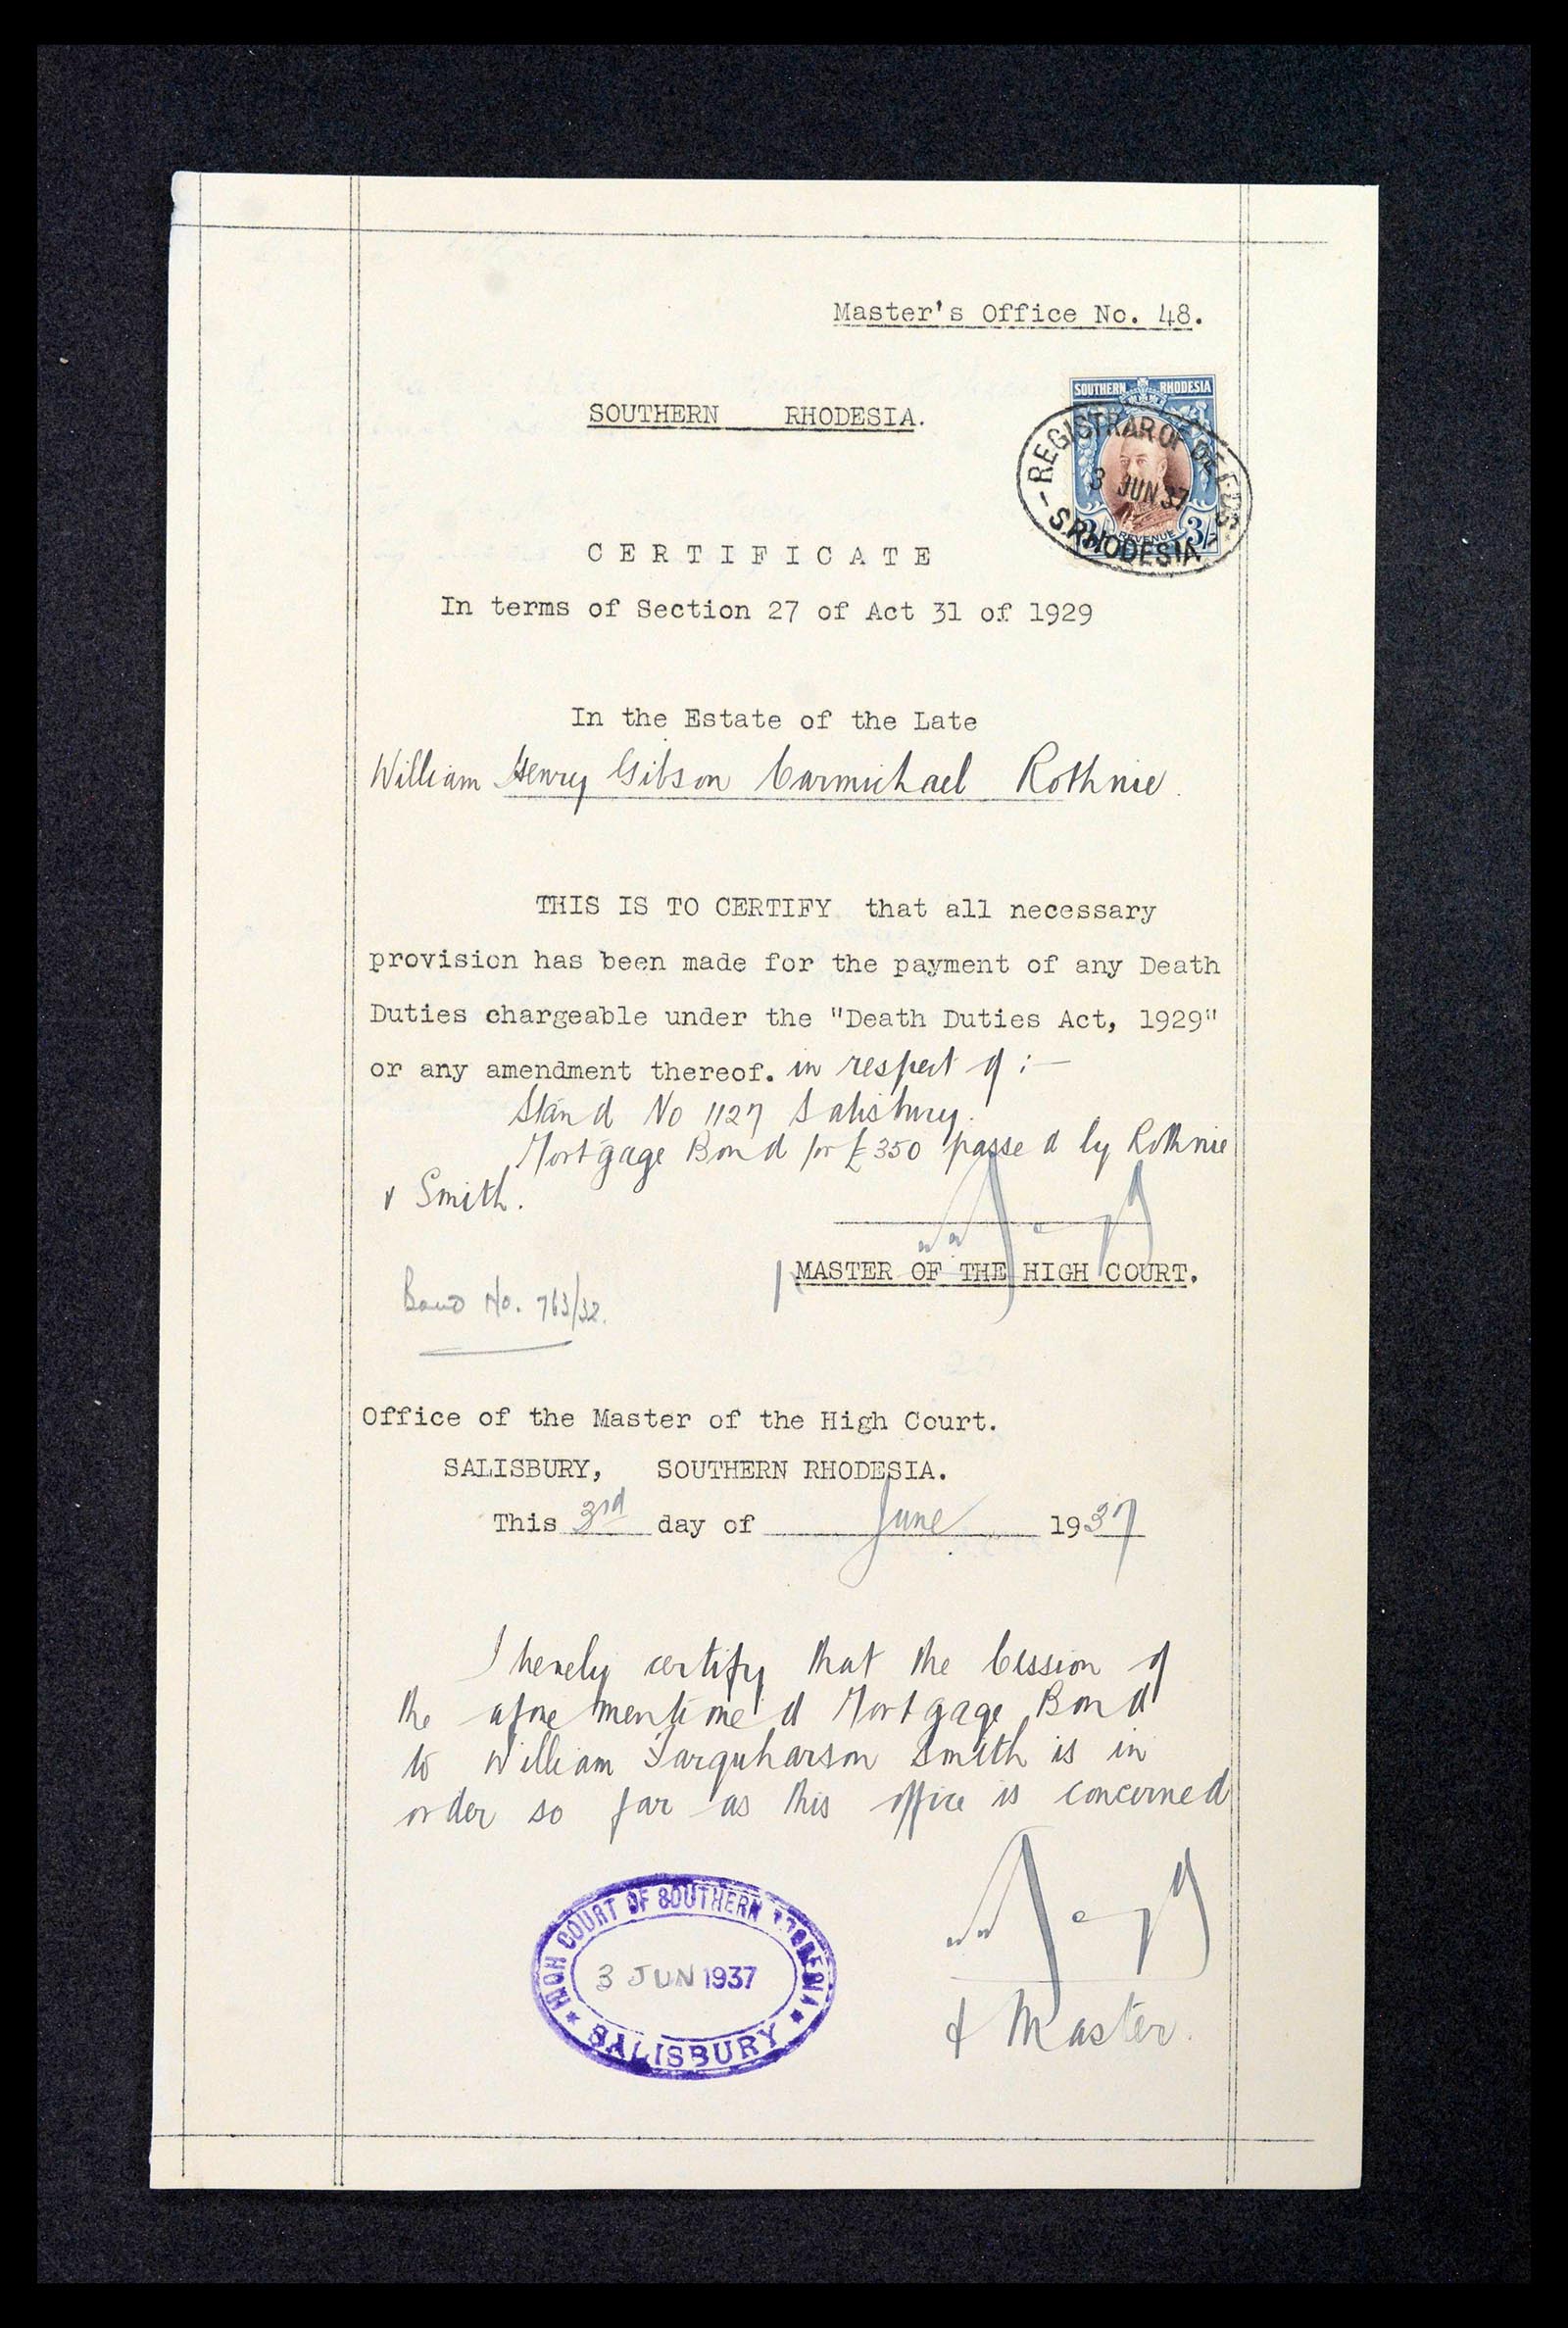 Master's Office No. 48.
SOUTHERN RHODESIA
REGISTRAR OF DEEDS
3 JUN 37
REVENUE
3/-
S. RHODESIA
SOUTHERN RHODESIA.
CERTIFICATE
In terms of Section 27 of Act 31 of 1929
In the Estate of the Late
William Henry Gibson Carmichael Rothnie.
THIS IS TO CERTIFY that all necessary
provision has been made for the payment of any Death
Duties chargeable under the "Death Duties Act, 1929"
or any amendment thereof. in respect of :—
Stand No 1127 Salisbury.
Mortgage Bond for £350 passed by Rothnie
& Smith.
MASTER OF THE HIGH COURT.
Bond No. 763/32.
Office of the Master of the High Court.
SALISBURY, SOUTHERN RHODESIA.
This 3rd day of June 1937
I hereby certify that the Cession of
the aforementioned Mortgage Bond
to William Farquharson Smith is in
order so far as this office is concerned
HIGH COURT OF SOUTHERN RHODESIA
3 JUN 1937
SALISBURY
Master.